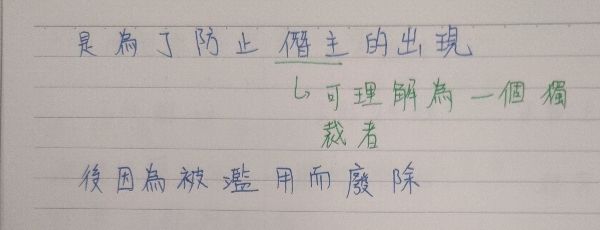 是為了防止僭主的出現
↳可理解為一個獨
裁者
後因為被濫用而廢除